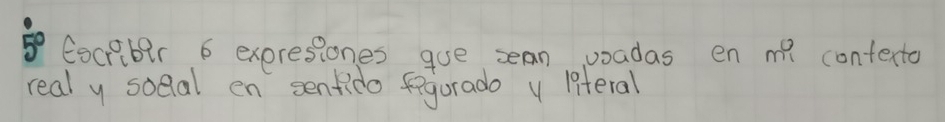 5° Escribir 6 expresiones que sean usadas en mi contexto
real y social en sentido figurado y literal